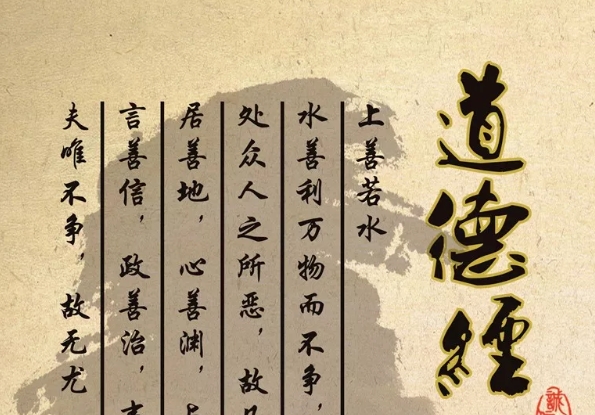 道德經
上善若水
水善利万物而不争，
处众人之所恶，故
居善地，心善渊，
言善信，政善治，
夫唯不争，故无尤